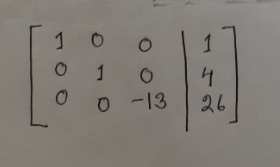 1 0 0 | 1
0 1 0 | 4
0 0 -13 | 26